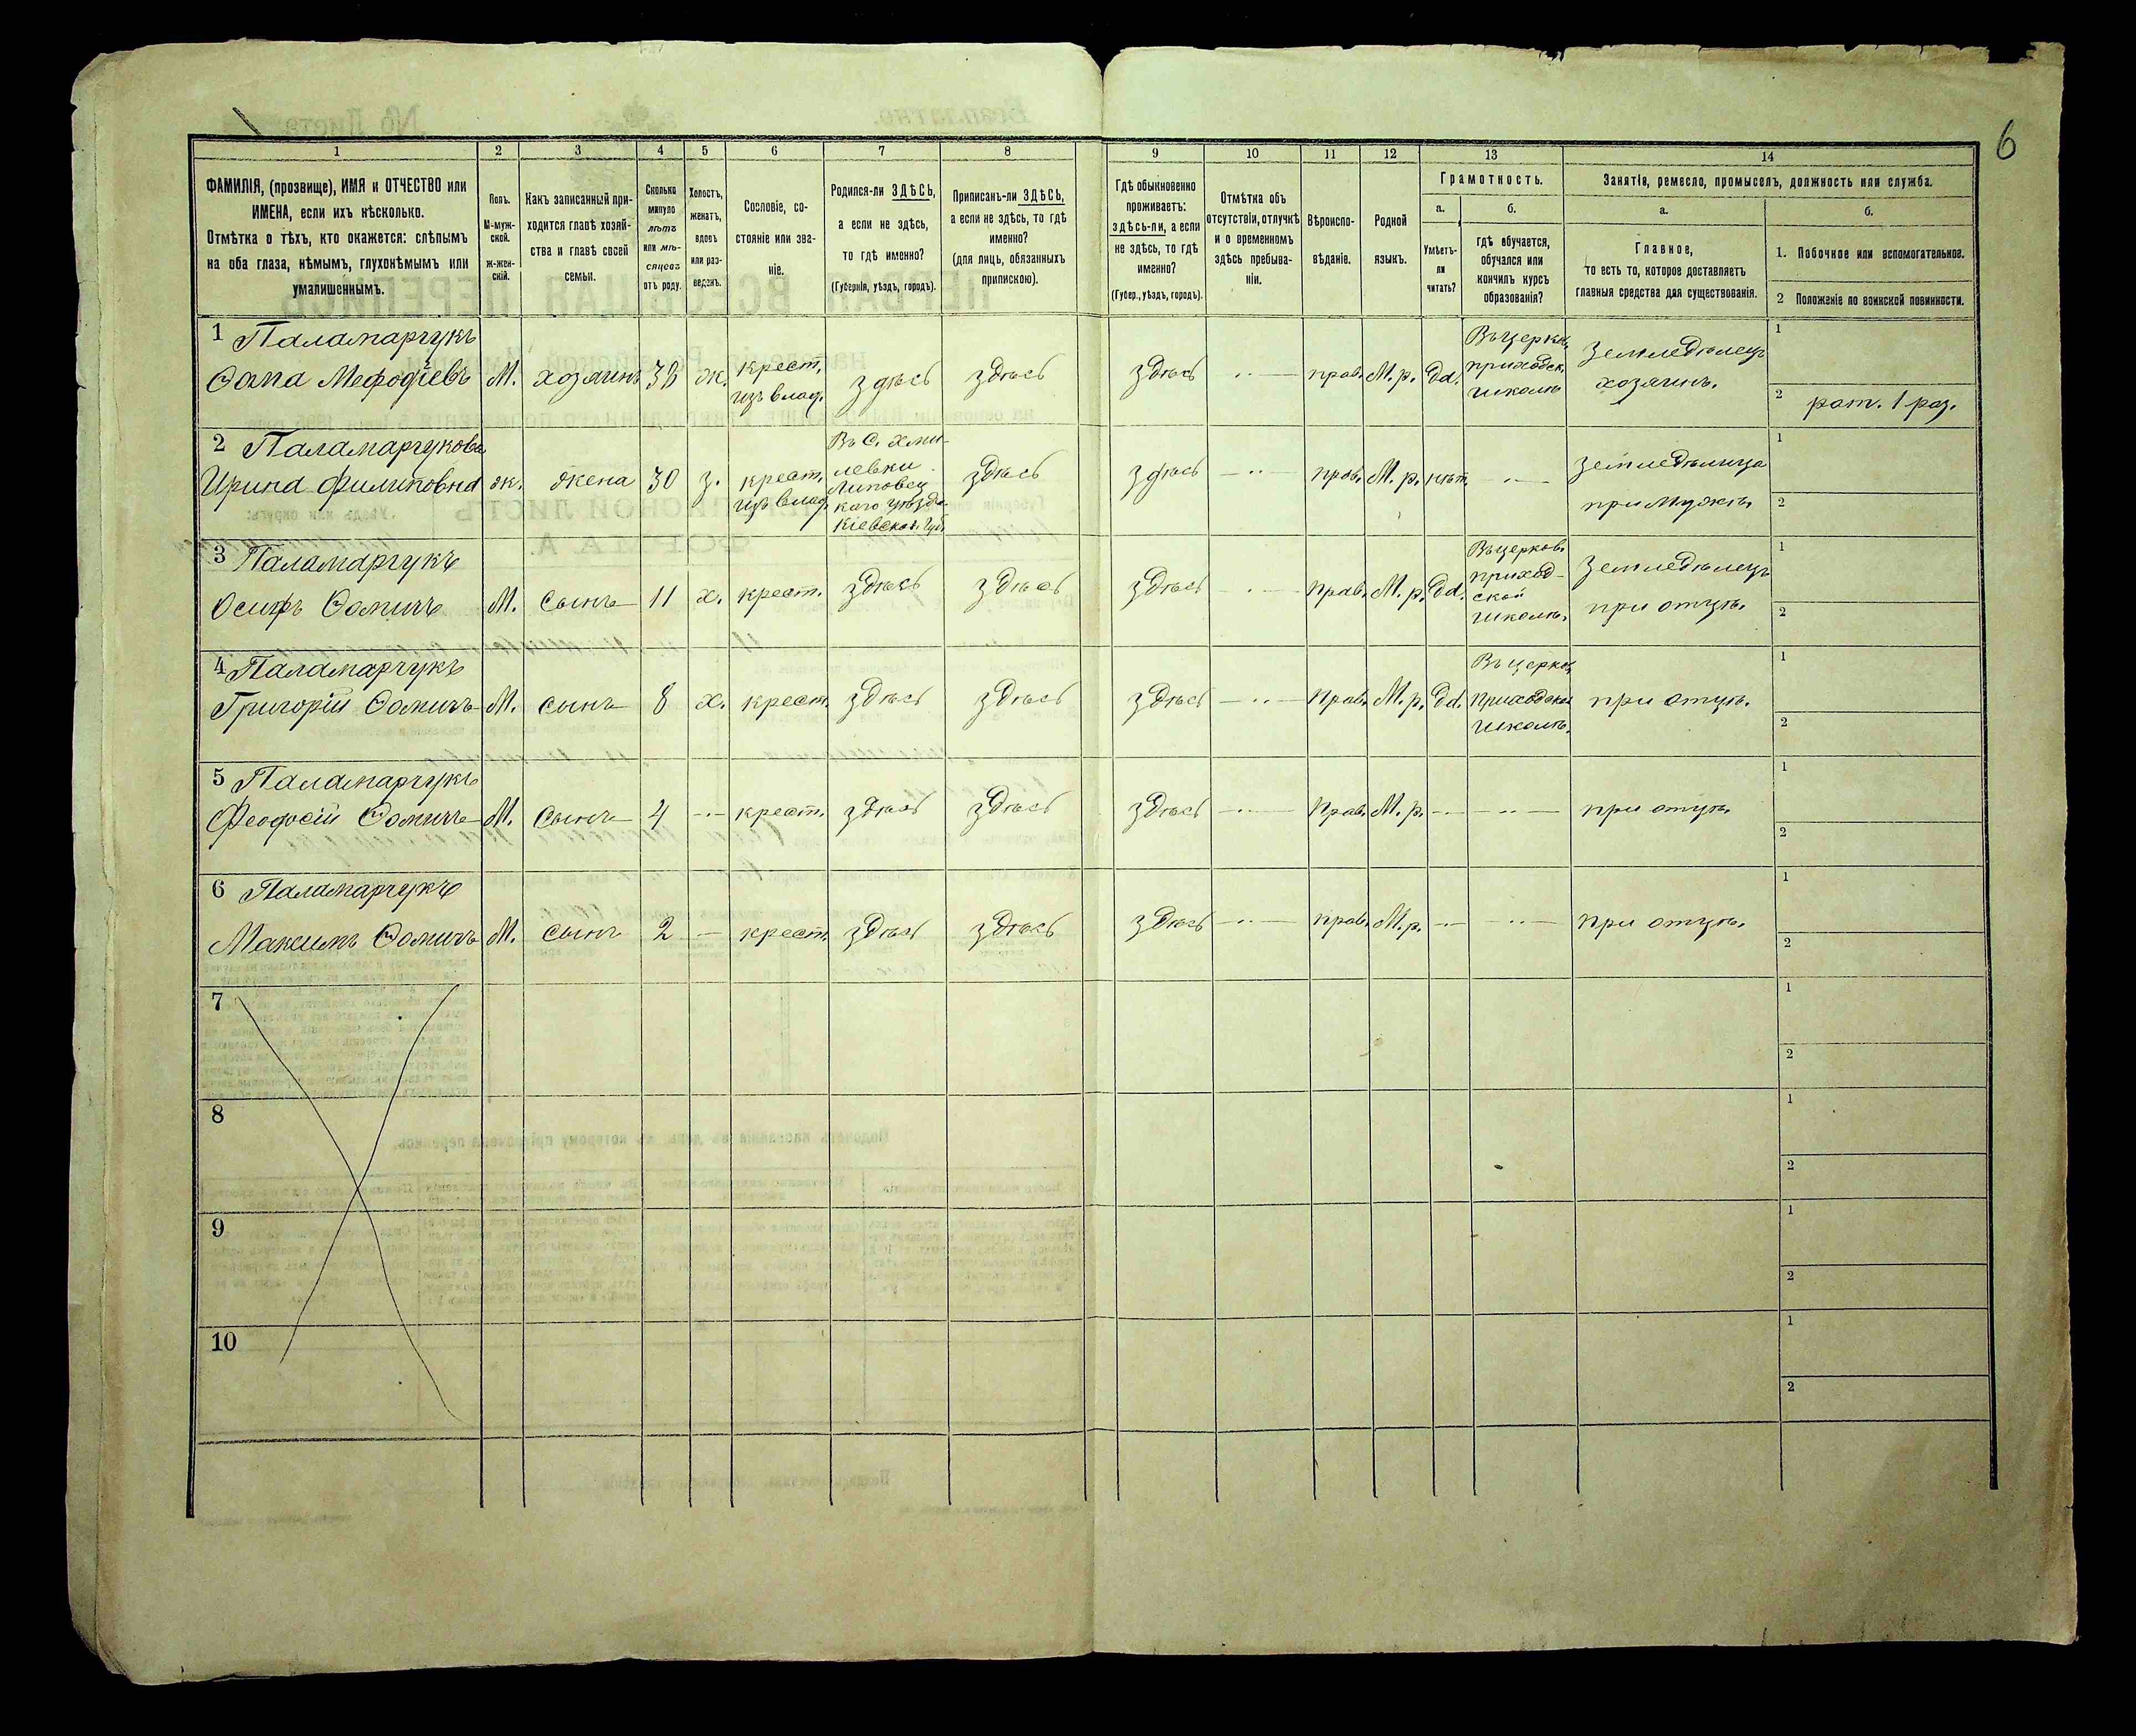 6
1
2
3
4
5
6
7
8
9
10
11
12
13
14
ФАМИЛІЯ, (прозвище), ИМЯ и ОТЧЕСТВО или
ИМЕНА, если ихъ нѣсколько.
Отмѣтка о тѣхъ, кто окажется: слѣпымъ
на оба глаза, нѣмымъ, глухонѣмымъ или
умалишеннымъ.
Полъ.
М-муж-
ской.
ж-жен-
скій.
Какъ записанный при-
ходится главѣ хозяй-
ства и главѣ своей
семьи.
Сколько
минуло
лѣтъ
или мѣ-
сяцевъ
отъ роду.
Холостъ,
женатъ,
вдовъ
или раз-
веденъ.
Сословіе, со-
стояніе или зва-
ніе.
Родился-ли ЗДѢСЬ,
а если не здѣсь,
то гдѣ именно?
(Губернія, уѣздъ, городъ).
Приписанъ-ли ЗДѢСЬ,
а если не здѣсь, то гдѣ
именно?
(для лицъ, обязанныхъ
припискою).
Гдѣ обыкновенно
проживаетъ:
здѣсь-ли, а если
не здѣсь, то гдѣ
именно?
(Губер., уѣздъ, городъ).
Отмѣтка объ
отсутствіи, отлучкѣ
и о временномъ
здѣсь пребыва-
ніи.
Вѣроиспо-
вѣданіе.
Родной
языкъ.
Грамотность.
а.
Умѣетъ-
ли
читать?
б.
гдѣ обучается,
обучался или
кончилъ курсъ
образованія?
Занятія, ремесло, промыселъ, должность или служба.
а.
Главное,
то есть то, которое доставляетъ
главныя средства для существованія.
б.
1. Побочное или вспомогательное.
2 Положеніе по воинской повинности.
1 Паламарчукъ
Ѳома Мефодіевъ М. хозяинъ 38 ж. крест. изъ влад. здѣсь здѣсь здѣсь — прав. М. р. да. Въ церков. приходск. школѣ Земледѣлецъ хозяинъ.
1
2 рат. 1 раз.
2 Паламарчукова
Ирина Филиповна ж. жена 30 з. крест. изъ влад. Въ С. Хми-
левки
Липовец
каго уѣзда
Кіевской Губ. здѣсь здѣсь — прав. М. р. нѣт. — Земледѣлица при мужѣ.
1
2
3 Паламарчукъ
Осипъ Ѳомичъ М. сынъ 11 х. крест. здѣсь здѣсь здѣсь — прав. М. р. да. Въ церков. приход-
ской
школѣ. Земледѣлецъ при отцѣ.
1
2
4 Паламарчукъ
Григорій Ѳомичъ М. сынъ 8 х. крест. здѣсь здѣсь здѣсь — прав. М. р. да. Въ церков. приходской школѣ. при отцѣ.
1
2
5 Паламарчукъ
Феофосій Ѳомичъ М. сынъ 4 — крест. здѣсь здѣсь здѣсь — прав. М. р. — — при отцѣ
1
2
6 Паламарчукъ
Максимъ Ѳомичъ М. сынъ 2 — крест. здѣсь здѣсь здѣсь — прав. М. р. — — при отцѣ.
1
2
7
1
2
8
1
2
9
1
2
10
1
2